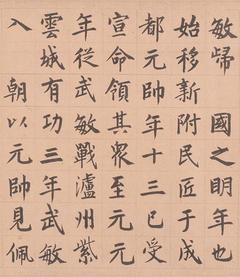 敏歸 國之明年也
始移新附民匠于成
都元帥年十三已受
宣命領其衆至元元
年從武敏戰瀘州紫
雲城有功三年武敏
入 朝以元帥見佩